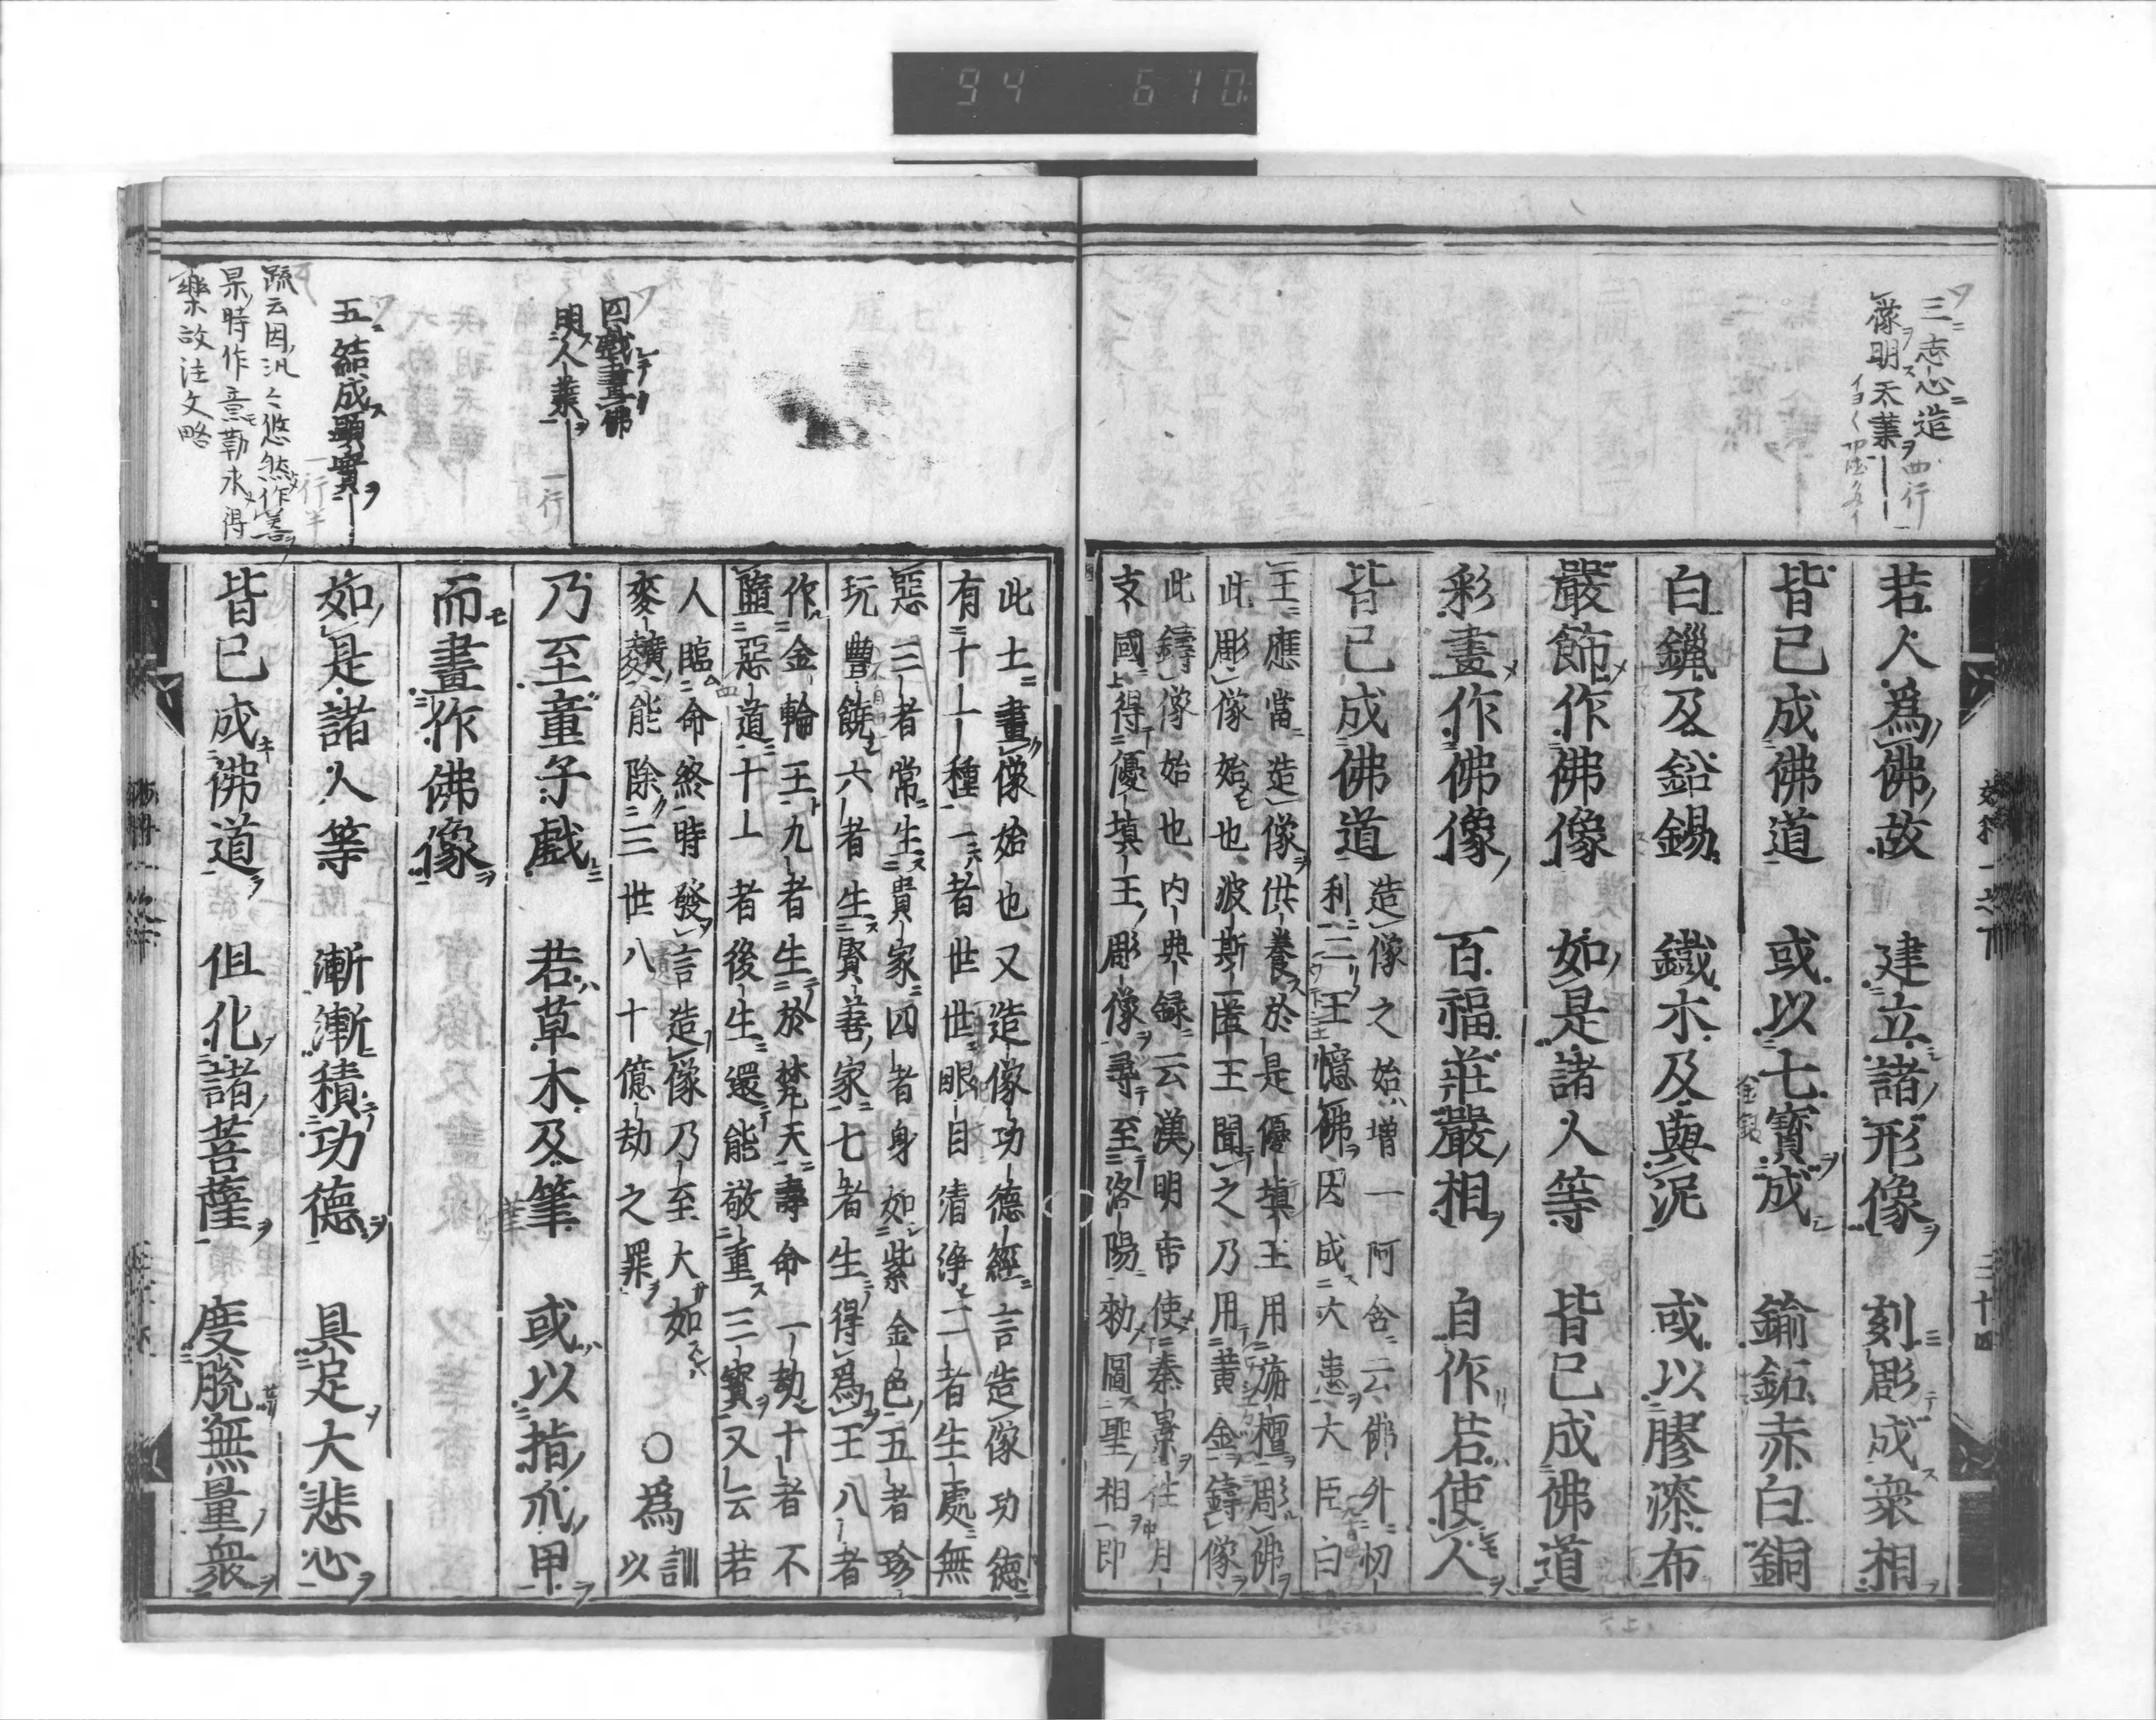 94 610
三志心造
像明天業
四行
若人為佛故 建立諸形像 刻彫成衆相
皆已成佛道 或以七寶成 鍮鉐赤白銅
白鑞及鉛錫 鐵木及與泥 或以膠漆布
嚴飾作佛像 如是諸人等 皆已成佛道
彩畫作佛像 百福莊嚴相 自作若使人
皆已成佛道
造像之始増一阿含云佛外忉
利三王憶佛因成大患大臣白
王應當造像供養於是優填王用旃檀彫佛
此彫像始也波斯匿王聞之乃用黄金鑄像
此鑄像始也内典録云漢明帝使秦景往月
支國得優填王彫像尋至洛陽勑圖聖相即
三十四
四戲畫佛
明人業
一行
五結成顯實
一行半
疏云因汎々悠然作善
果時作意勤求得
樂故注文略
此土畫像始也又造像功德經言造像功德
有十一種一者世世眼目清浄二者生處無
惡三者常生貴家四者身如紫金色五者珍
玩豐饒六者生賢善家七者生得為王八者
作金輪王九者生於梵天壽命一劫十者不
墮惡道十一者後生還能敬重三寶又云若
人臨命終時發言造像乃至大如
麥䵃能除三世八十億劫之罪
○為訓以
乃至童子戲 若草木及筆 或以指爪甲
而畫作佛像
如是諸人等 漸漸積功德 具足大悲心
皆已成佛道 但化諸菩薩 度脱無量衆